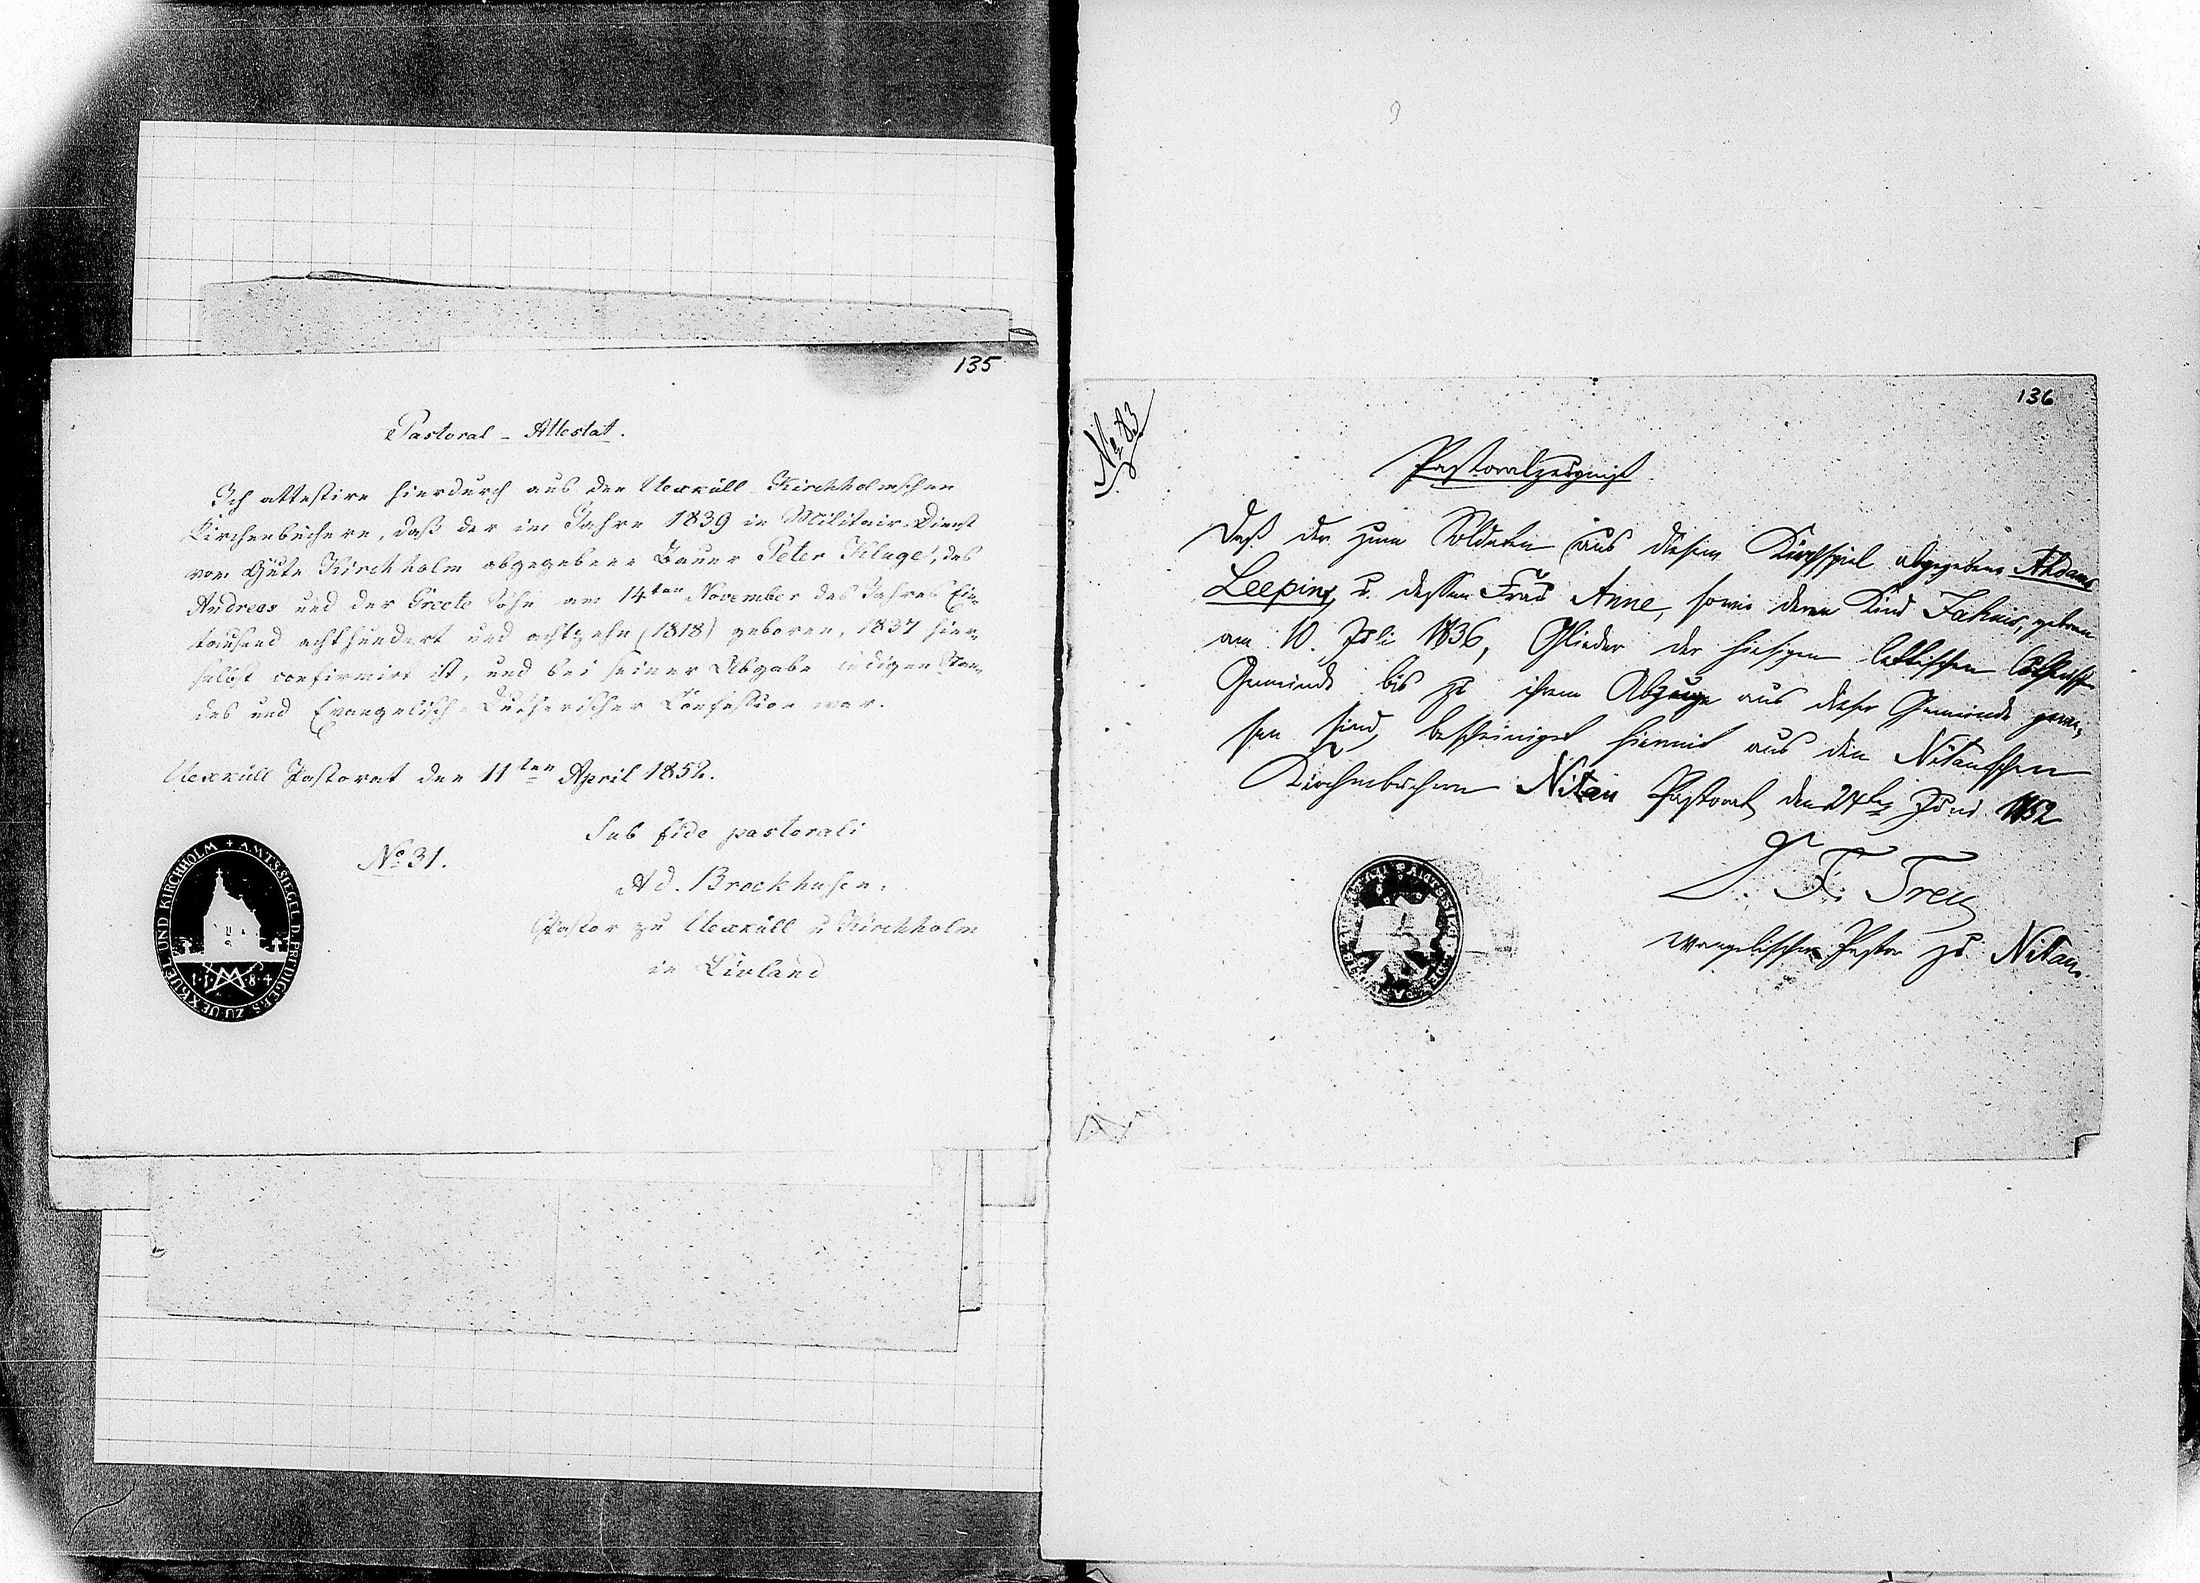 135
Pastoral-Attestat.
Ich attestire hierdurch aus den Uexküll-Kirchholmschen
Kirchenbüchern, daß der im Jahre 1839 in Militair-Dienst
vom Gute Kirchholm abgegebene Bauer Peter Kluge, des
Andreas und der Greete Sohn am 14ten November des Jahres Ein-
tausend achthundert und achtzehn (1818) geboren, 1837 hier-
selbst confirmirt ist, und bei seiner Abgabe ledigen Stan-
des und Evangelisch-Lutherischer Confession war.
Uexküll Pastorat den 11ten April 1852.
No 31.
Sub fide pastorali
Ad. Brockhusen,
Pastor zu Uexküll u Kirchholm
in Livland
AMTSSIEGEL D. PREDIGERS ZU UEXKUEL UND KIRCHHOLM
136
No 83
Pastoralzeugniß
Daß der zum Soldaten aus diesem Kirchspiel abgegebene
Leeping, u. dessen Frau Anne, sowie deren Kind Jahnis, geboren
am 10. Juli 1836, Glieder der hiesigen lettischen
Gemeinde bis zu ihrem Abzuge aus dieser Gemeinde gewe-
sen sind, bescheinigt hiermit aus den Nitauschen
Kirchenbüchern Nitau Pastorat den 24ten Juni 1852
F. Treu
evangelischer Pastor zu Nitau.